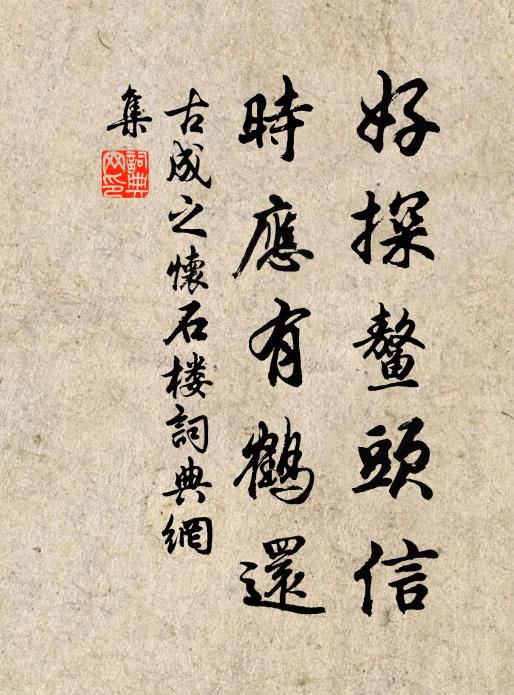 好探鼇頭信
時應有鶴還
古成之懷石楼詞典網
集
詞典網印